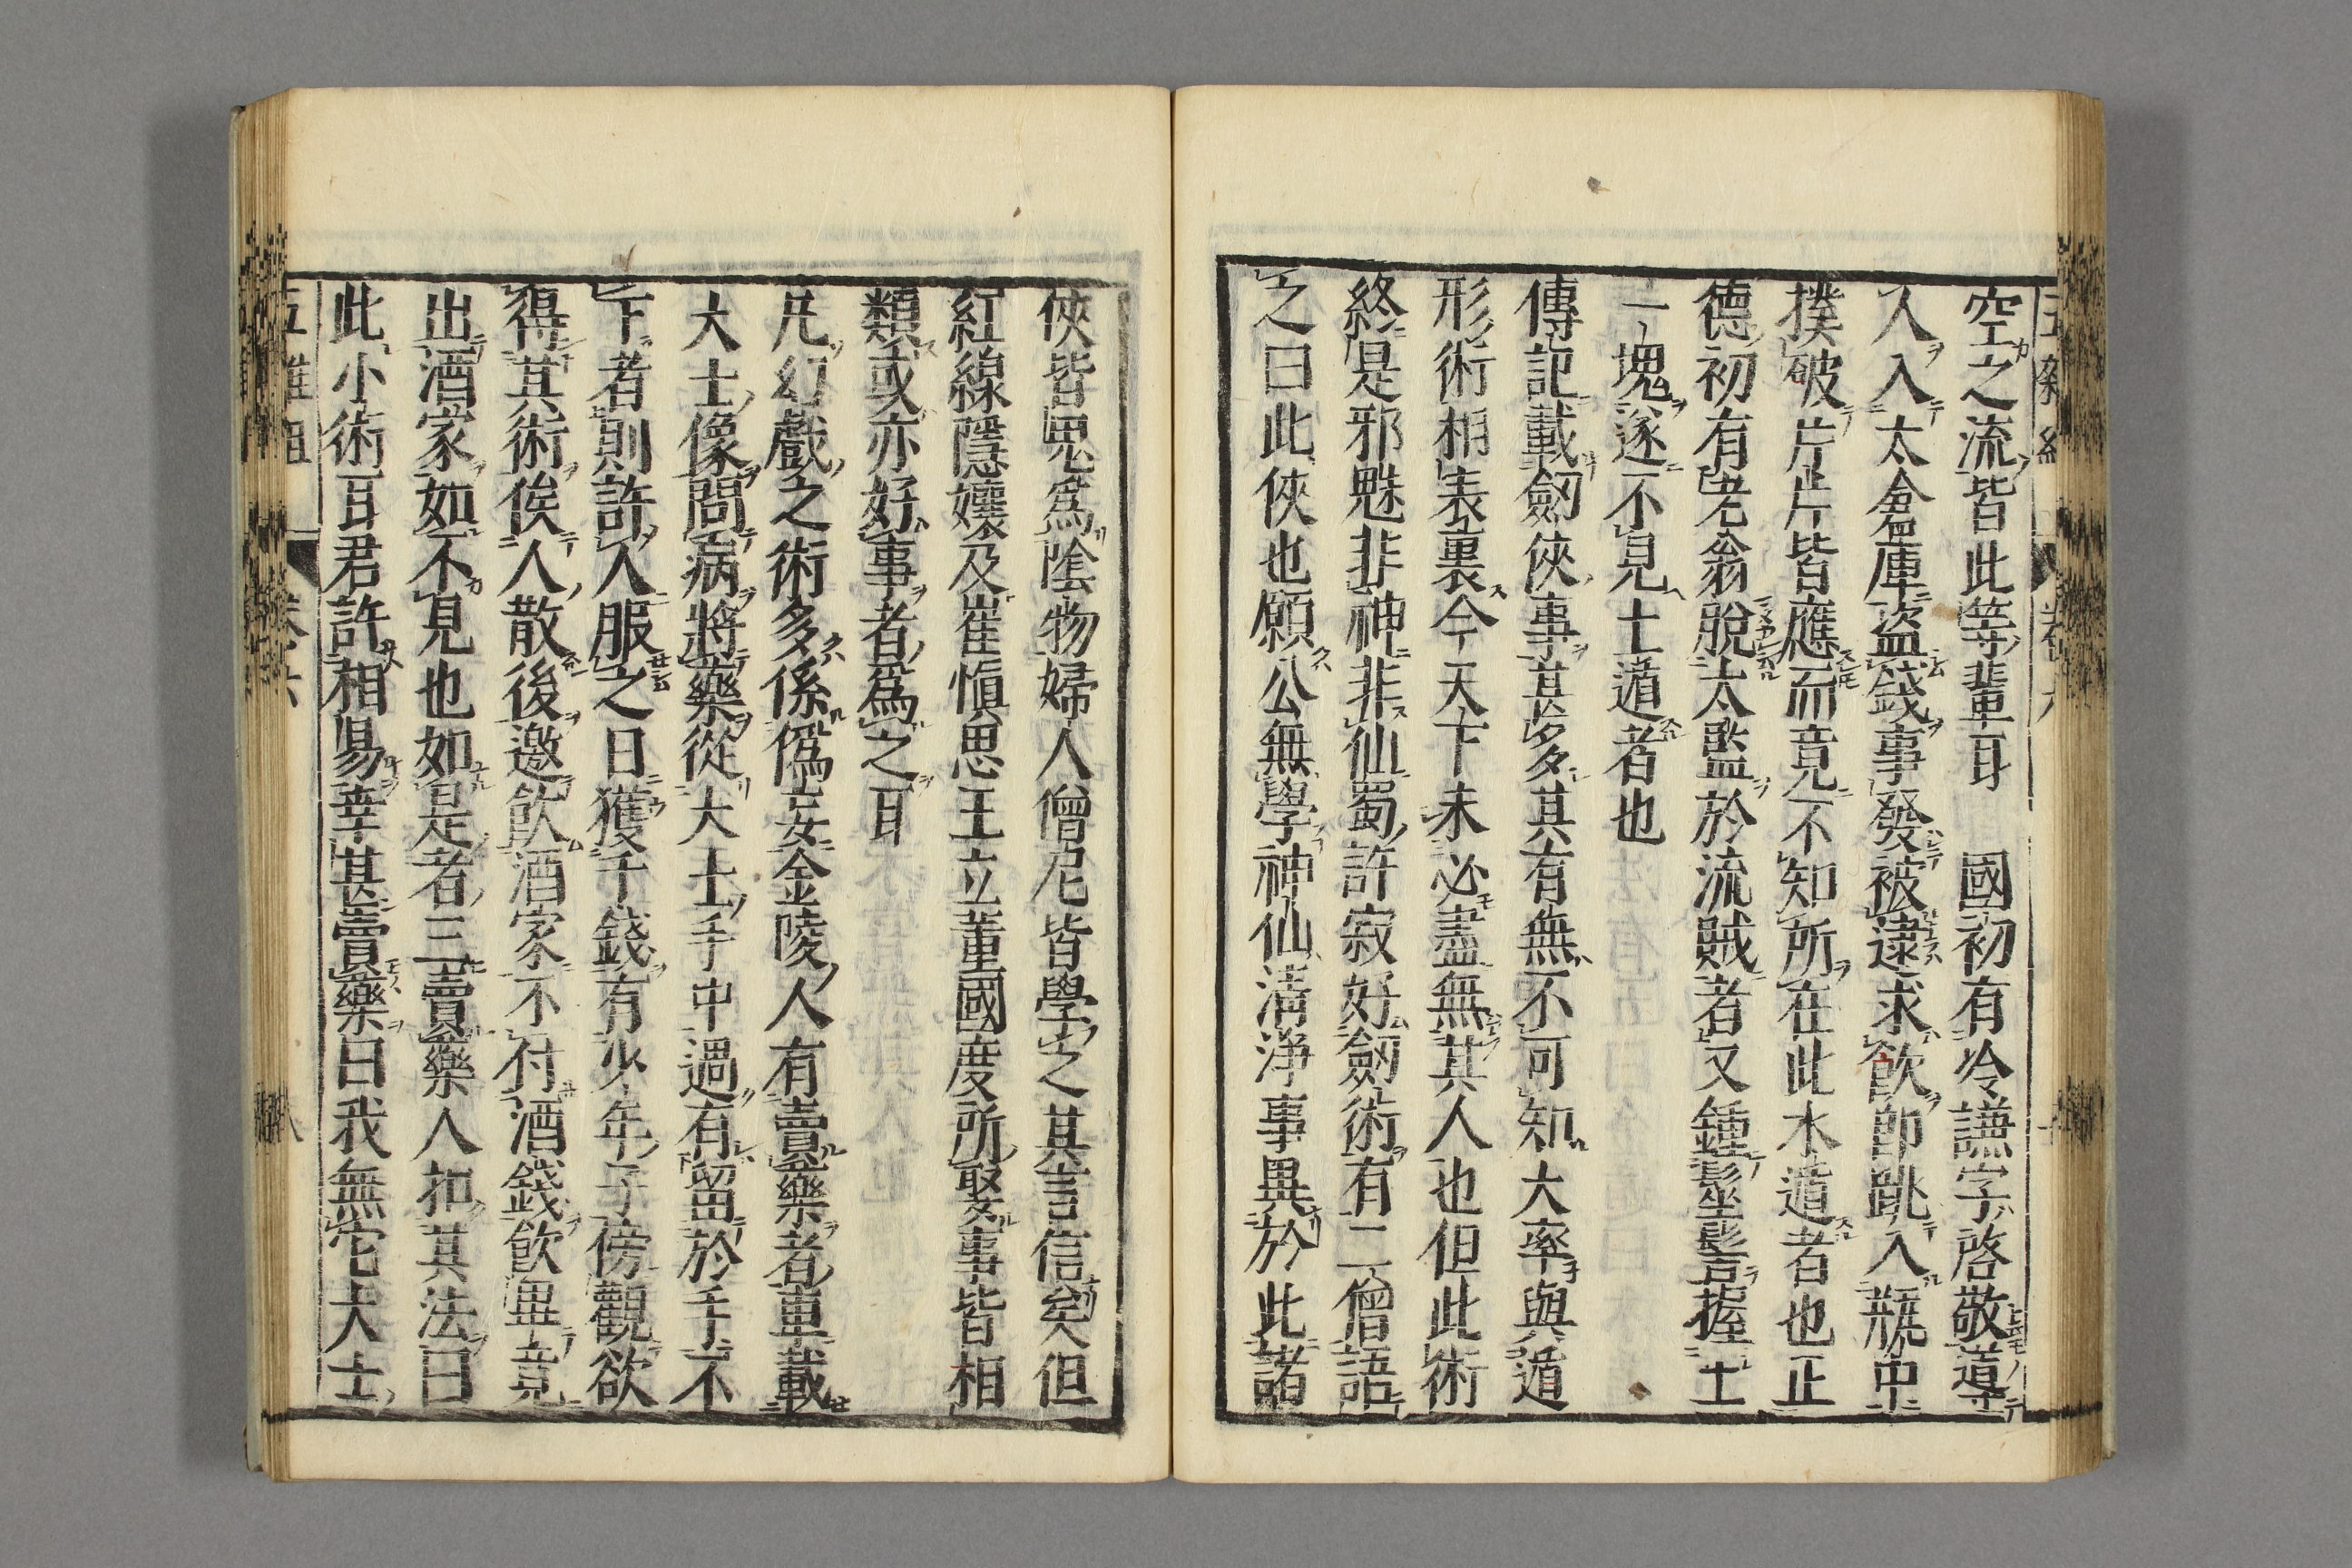 空之流皆此等輩耳　國初有冷謙字啓敬導
人入太倉庫盜錢事發被逮求飲卽跳入瓶中
撲破片片皆應而竟不知所在此木遁者也正
德初有老翁脫太監於流賊者又鍾髽髻握土
一塊遂不見土遁者也
傳記載劔俠事甚多其有無不可知大率與遁
形術相表裏今天下未必盡無其人也但此術
終是邪魅非神非仙蜀許寂好劔術有二僧語
之曰此俠也願公無學神仙淸淨事異於此諸
俠皆鬼爲陰物婦人僧尼皆學之其言信矣但
紅線隱孃及崔愼思王立董國度所娶事皆相
類或亦好事者爲之耳
凡幻戲之術多係僞妄金陵人有賣藥者車載
大士像問病將藥從大士手中過有留於手不
下者則許人服之日獲千錢有少年子傍觀欲
得其術俟人散後邀飲酒家不付酒錢飲畢竟
出酒家如不見也如是者三賣藥人扣其法曰
此小術耳君許相易幸甚賣藥曰我無它大士